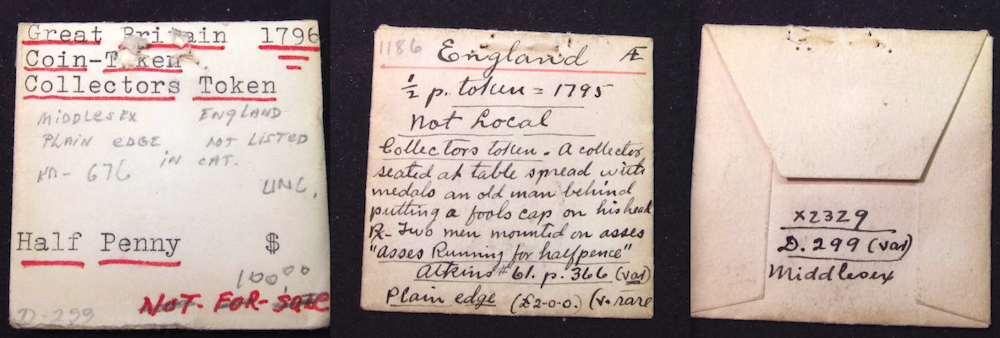 Great Britain 1796
Coin-Token
Collectors Token
MIDDLESEX ENGLAND
PLAIN EDGE NOT LISTED
IN CAT.
NO- 676
UNC.
Half Penny $
100.00
NOT-FOR-SALE
D-299
1186
England Æ
½ p. token = 1795
Not Local
Collectors token. A collector
seated at table spread with
medals an old man behind
putting a fools cap on his head
R- Two men mounted on asses
"asses Running for halfpence"
Atkins # 61. p. 366 (var)
Plain edge (£2-0-0.) (v. rare
X2329
D. 299 (var)
Middlesex